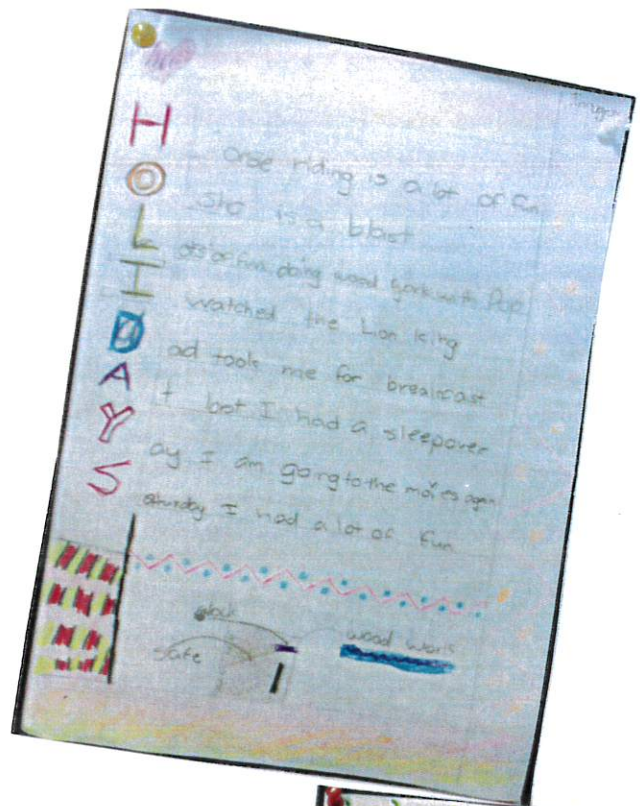 H orse riding is a lot of fun
O sho is a blast
L ots of fun doing wood work with Pop
I watched the Lion King
D ad took me for breakfast
A t bot I had a sleepover
Y ay I am going to the movies again
S aturday I had a lot of fun
safe
wood work